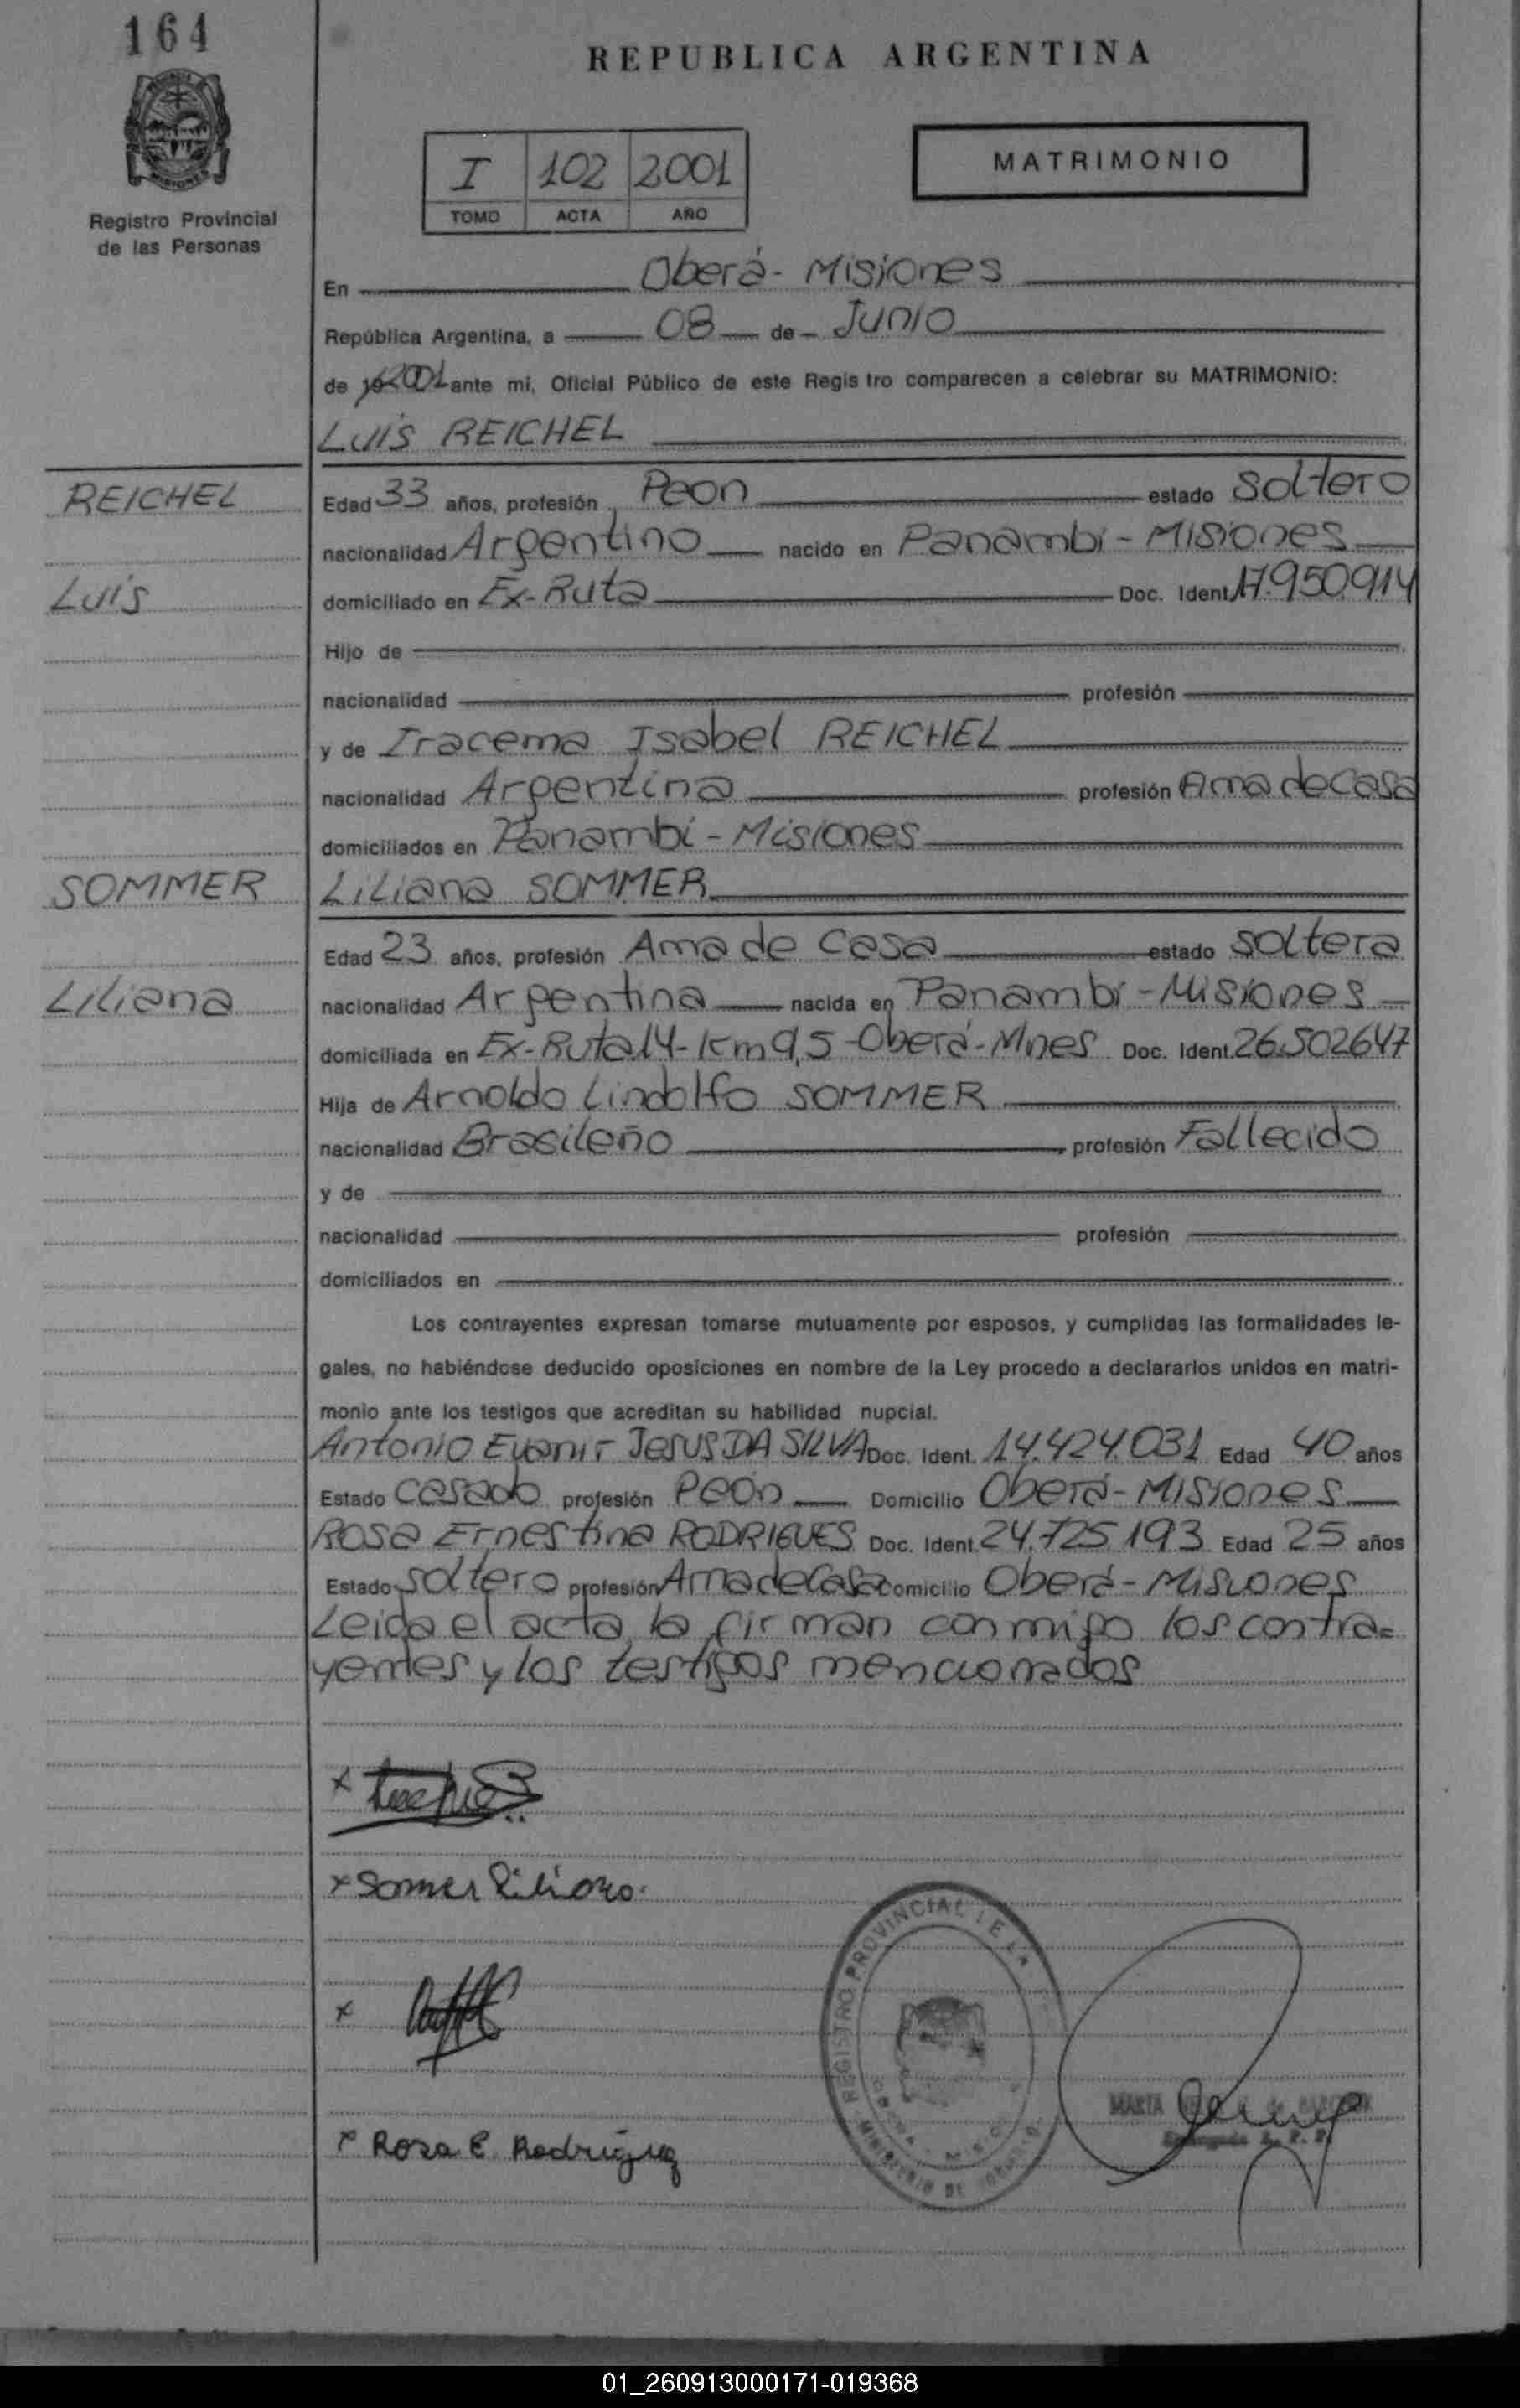 164
REPUBLICA ARGENTINA
MISIONES
Registro Provincial
de las Personas
I 102 2001
TOMO ACTA AÑO
MATRIMONIO
En Oberá - Misiones
República Argentina, a 08 de Junio
de 2001 ante mí, Oficial Público de este Regis tro comparecen a celebrar su MATRIMONIO:
Luis REICHEL
REICHEL Edad 33 años, profesión Peon estado Soltero
nacionalidad Argentino nacido en Panambi - Misiones
Luis domiciliado en Ex-Ruta Doc. Ident. 17.950.914
Hijo de
nacionalidad profesión
y de Iracema Isabel REICHEL
nacionalidad Argentina profesión Ama de Casa
domiciliados en Panambi - Misiones
SOMMER Liliana SOMMER
Edad 23 años, profesión Ama de Casa estado Soltera
Liliana nacionalidad Argentina nacida en Panambi - Misiones
domiciliada en Ex-Ruta 14 - Km 9,5 - Oberá - Mnes Doc. Ident. 26.502647
Hija de Arnoldo Lindolfo SOMMER
nacionalidad Brasileño profesión Fallecido
y de
nacionalidad profesión
domiciliados en
Los contrayentes expresan tomarse mutuamente por esposos, y cumplidas las formalidades le-
gales, no habiéndose deducido oposiciones en nombre de la Ley procedo a declararlos unidos en matri-
monio ante los testigos que acreditan su habilidad nupcial.
Antonio Evanir Jesus DA SILVA Doc. Ident. 14.424.031 Edad 40 años
Estado Casado profesión Peón Domicilio Oberá - Misiones
Rosa Ernestina RODRIGUES Doc. Ident. 24.725.193 Edad 25 años
Estado Soltero profesión Ama de Casa Domicilio Oberá - Misiones
Leida el acta la firman conmigo los contra=
yentes y los testigos mencionados
x
x Somer Liliana.
x
x Rosa E. Rodriguez
REGISTRO PROVINCIAL DE LA
MINISTERIO DE
MARTA
01_260913000171-019368